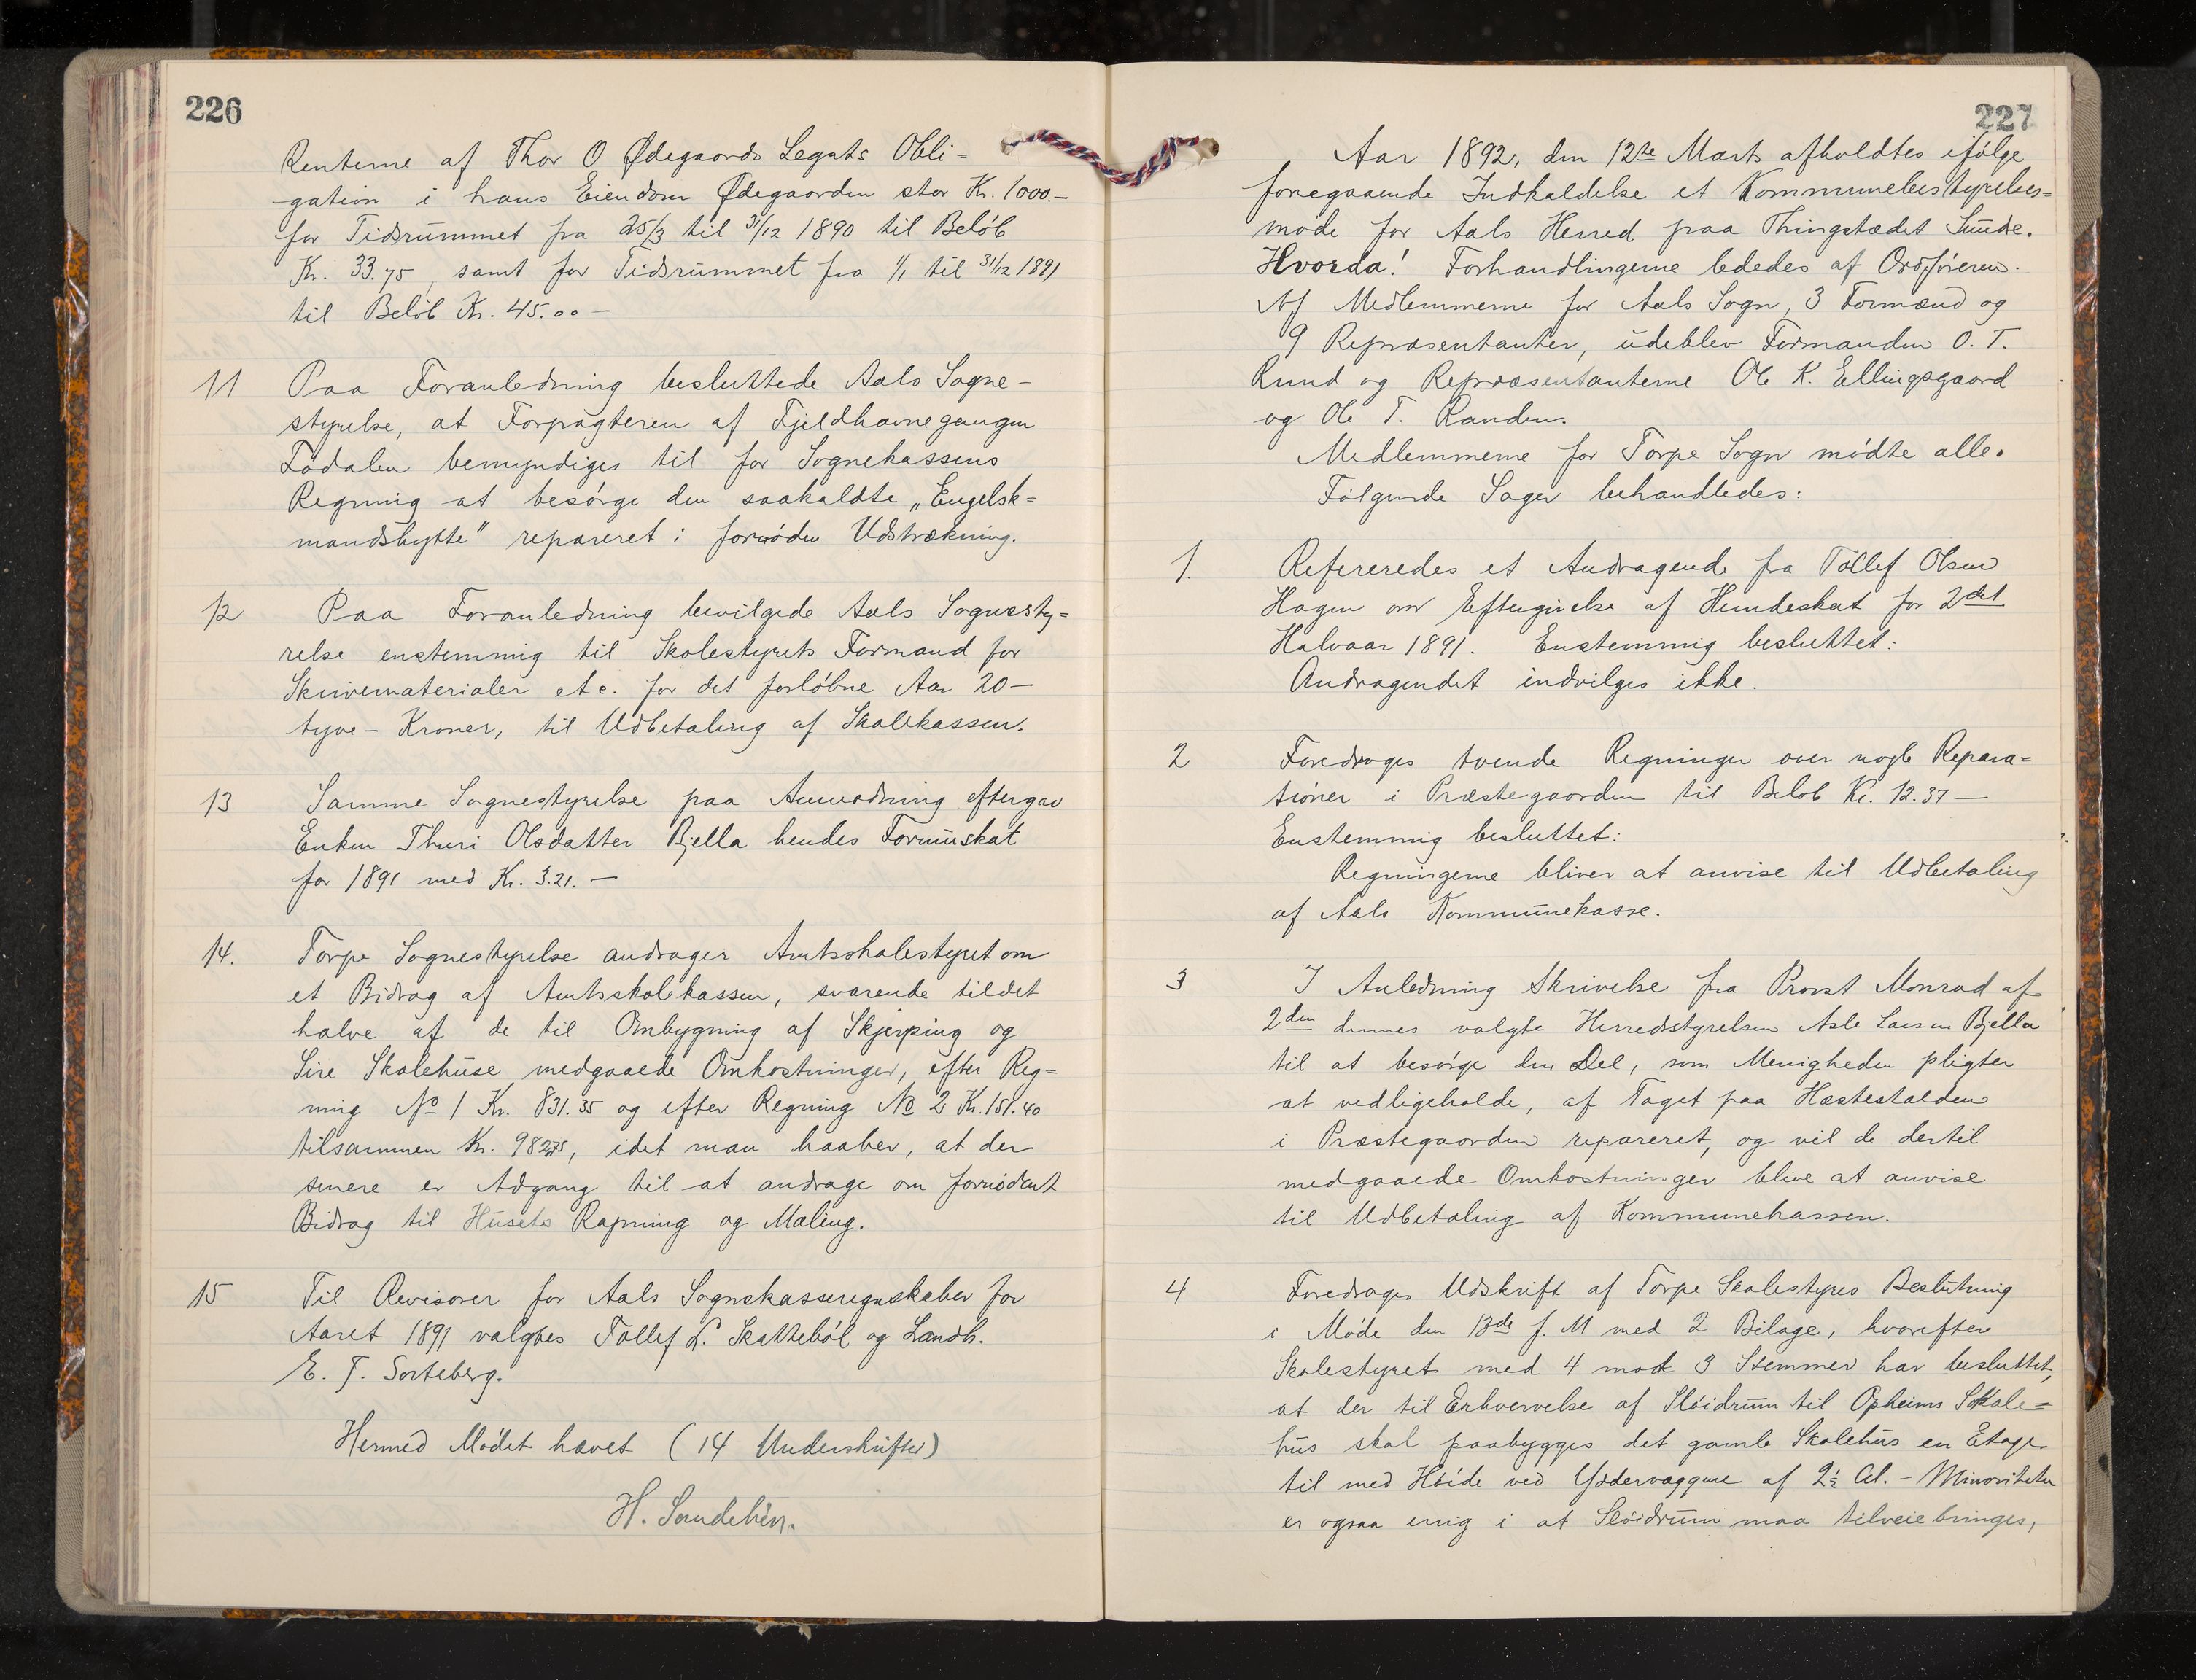 226
Renterne af Thor O Ødegaards Legats Obli-
gation i hans Eiendom Ødegaarden stor Kr. 1000.-
for Tidsrummet fra 25/3 til 31/12 1890 til Beløb
Kr. 33.75, samt for Tidsrummet fra 1/1 til 31/12 1891
til Beløb Kr. 45.00 -
11 Paa Foranledning besluttede Aals Sogne-
styrelse, at Forpagteren af Fjeldhavnegangen
Lødalen bemyndiges til for Sognekassens
Regning at besørge den saakaldte „Engelsk=
mandshytte" repareret i fornøden Udstrækning.
12 Paa Foranledning bevilgede Aals Sognesty=
relse enstemmig til Skolestyrets Formand for
Skrivematerialer etc. for det forløbne Aar 20-
tyve- Kroner, til Udbetaling af Skolekassen.
13 Samme Sognestyrelse paa Anmodning eftergav
Enken Thuri Olsdatter Bjella hendes Formuskat
for 1891 med Kr. 3.21. -
14. Torpe Sognestyrelse andrager Amtsskolestyret om
et Bidrag af Amtsskolekassen, svarende til det
halve af de til Ombygning af Skjerping og
Sire Skolehuse medgaaede Omkostninger, efter Reg=
ning No 1 Kr. 831.35 og efter Regning No 2 Kr. 151.40
tilsammen Kr. 982.75, idet man haaber, at der
senere er Adgang til at andrage om fornødent
Bidrag til Husets Rapning og Maling.
15 Til Revisorer for Aals Sognskasseregnskaber for
Aaret 1891 valgtes Tollef L. Skattebøl og Landh.
E. T. Sorteberg.
Hermed Mødet hævet (14 Underskrifter)
H. Sundehen.
227
Aar 1892, den 12te Marts afholdtes ifølge
foregaaende Indkaldelse et Kommunebestyrelses=
møde for Aals Herred paa Thingstedet Sunde.
Hvorda! Forhandlingerne lededes af Ordføreren.
Af Medlemmerne for Aals Sogn, 3 Formænd og
9 Repræsentanter, udeblev Formanden O. T.
Rund og Repræsentanterne Ole K. Ellingsgaard
og Ole T. Randen.
Medlemmerne for Torpe Sogn mødte alle.
Følgende Sager behandledes:
1. Refereredes et Andragende fra Tollef Olsen
Hagen om Eftergivelse af Hundeskat for 2det
Halvaar 1891. Enstemmig besluttet:
Andragendet indvilges ikke.
2 Foredroges tvende Regninger over nogle Repara=
tioner i Præstegaarden til Beløb Kr. 12.37 -
Enstemmig besluttet:
Regningerne bliver at anvise til Udbetaling
af Aals Kommunekasse.
3 I Anledning Skrivelse fra Provst Monrad af
2den dennes valgte Herredsstyrelsen Asle Larsen Bjella
til at besørge den Del, som Menigheden pligter
at vedligeholde, af Taget paa Hestestalden
i Præstegaarden repareret, og vil de dertil
medgaaede Omkostninger blive at anvise
til Udbetaling af Kommunekassen.
4 Foredroges Udskrift af Torpe Skolestyres Beslutning
i Møde den 13de f. M med 2 Bilage, hvorefter
Skolestyret med 4 mod 3 Stemmer har besluttet,
at der til Erhvervelse af Sløidrum til Opheims Skole=
hus skal paabygges det gamle Skolehus en Etage
til med Høide ved Ydervæggene af 2½ Al. - Minoriteten
er ogsaa enig i at Sløidrum maa tilveiebringes,